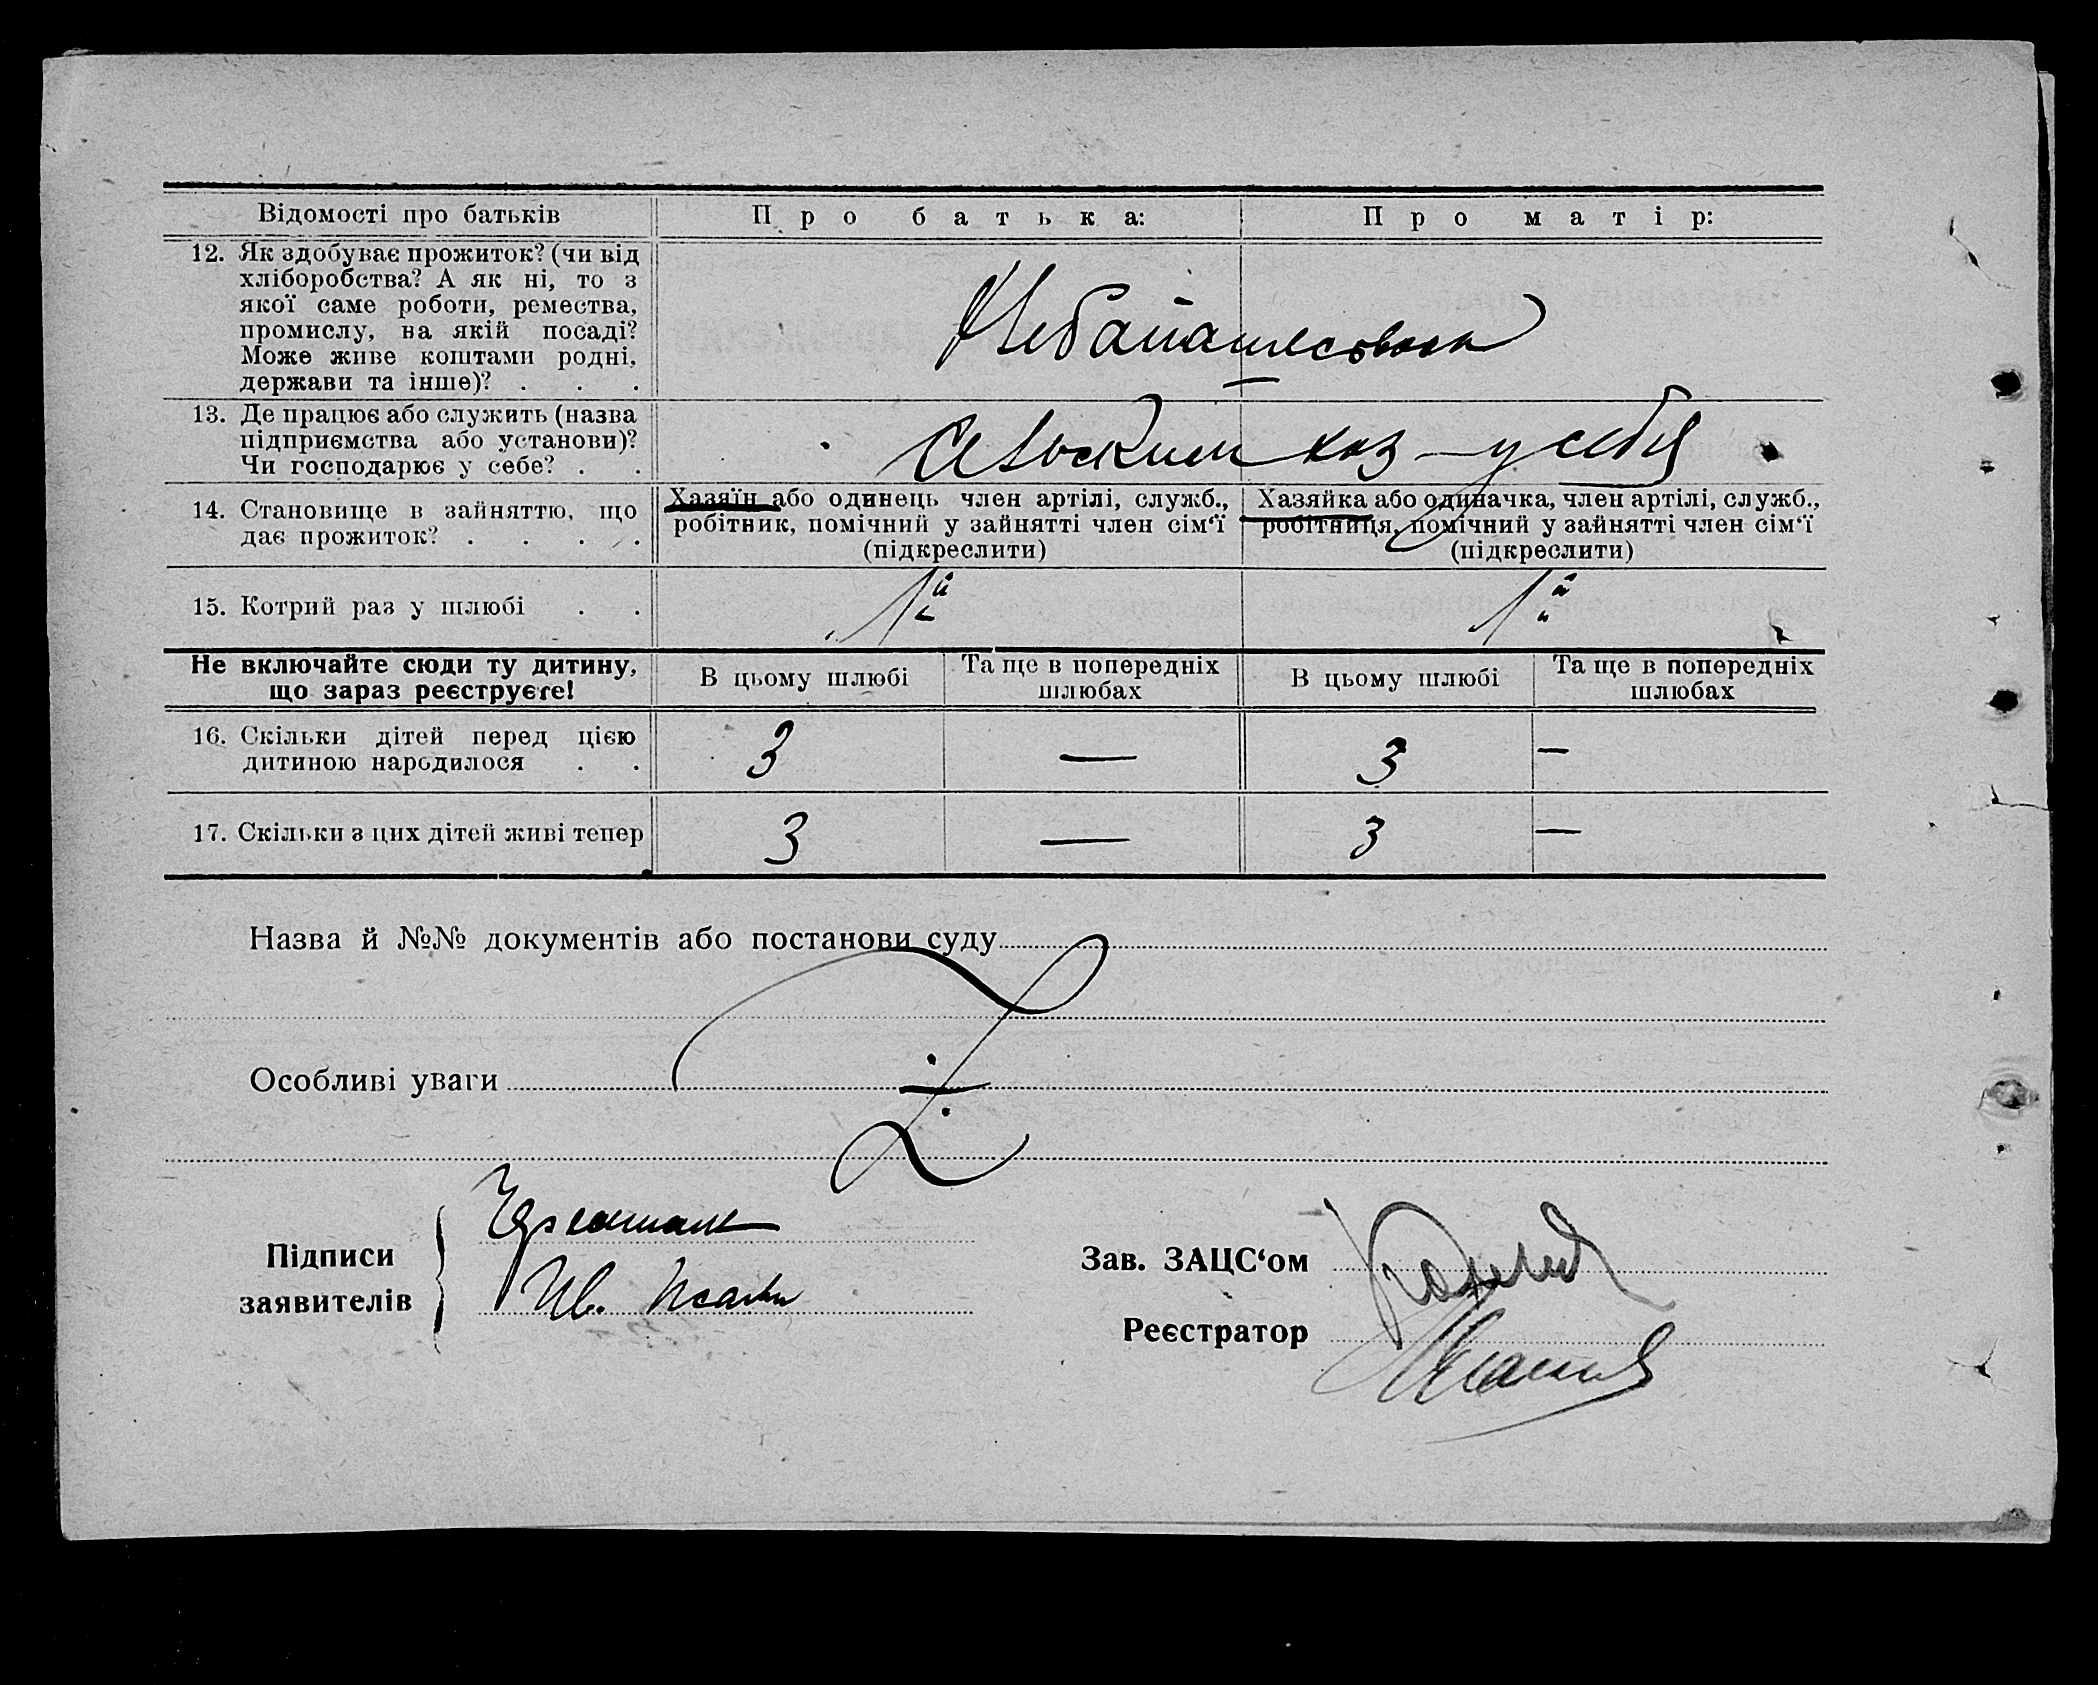 Відомості про батьків
Про батька:
Про матір:
12. Як здобуває прожиток? (чи від
хліборобства? А як ні, то з
якої саме роботи, ремества,
промислу, на якій посаді?
Може живе коштами родні,
держави та інше)? . . .
13. Де працює або служить (назва
підприємства або установи)?
Чи господарює у себе? . .
хоз – у себя
14. Становище в зайняттю, що
дає прожиток? . . . .
Хазяїн або одинець член артілі, служб.,
робітник, помічний у зайнятті член сім‘ї
(підкреслити)
Хазяйка або одиначка, член артілі, служб.,
робітниця, помічний у зайнятті член сім‘ї
(підкреслити)
15. Котрий раз у шлюбі . .
1й
1й
Не включайте сюди ту дитину,
що зараз реєструєте!
В цьому шлюбі
Та ще в попередніх
шлюбах
В цьому шлюбі
Та ще в попередніх
шлюбах
16. Скільки дітей перед цією
дитиною народилося . .
3
—
3
—
17. Скільки з цих дітей живі тепер
3
—
3
—
Назва й №№ документів або постанови суду
Особливі уваги
Підписи
заявителів
Ив.
Зав. ЗАЦС‘ом
Реєстратор